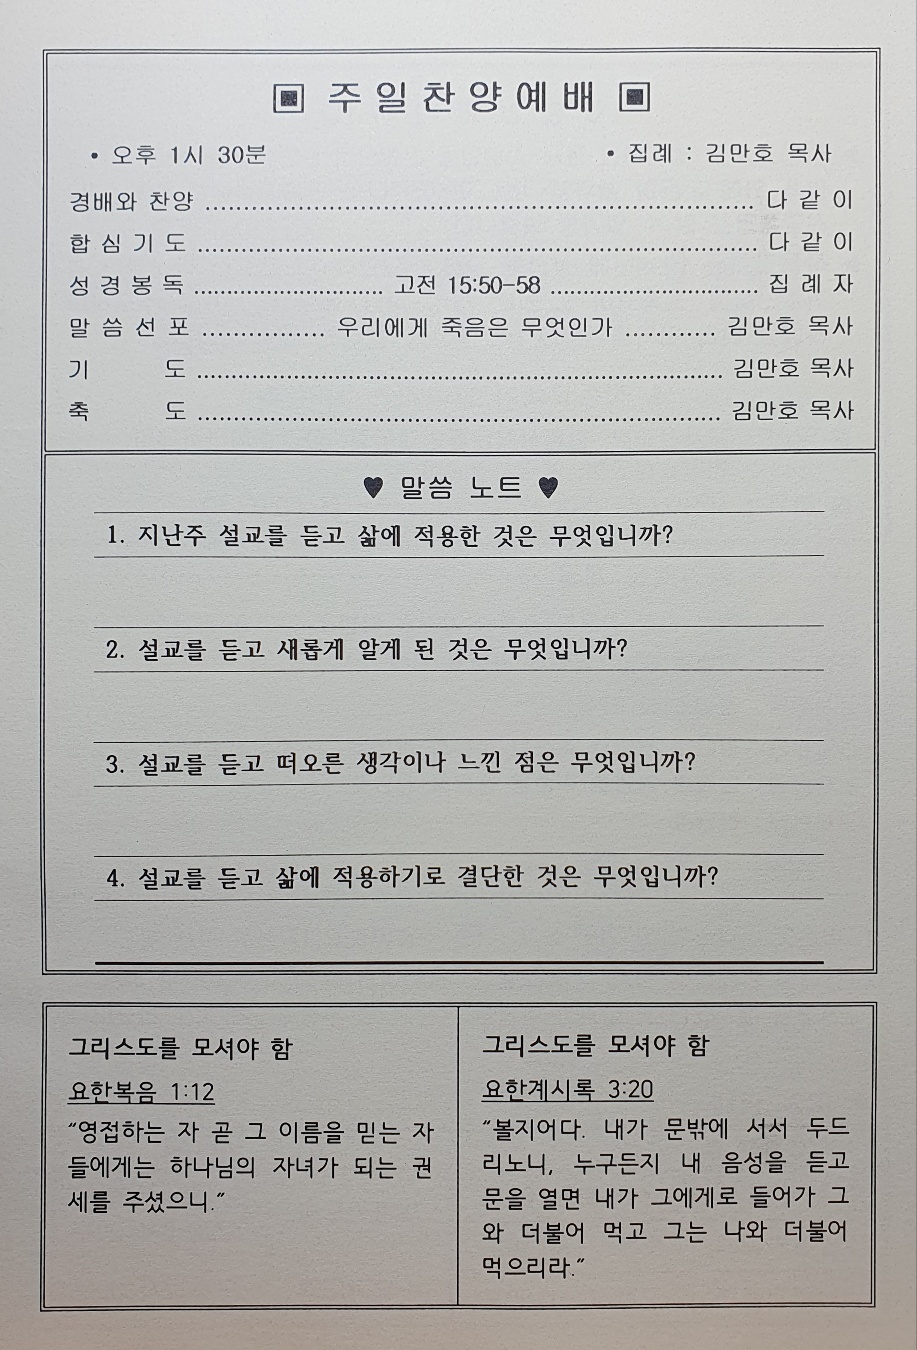 ▣ 주일찬양예배 ▣
• 오후 1시 30분 • 집례 : 김만호 목사
경배와 찬양 ........ 다 같 이
합 심 기 도 ........ 다 같 이
성 경 봉 독 ........ 고전 15:50-58 ........ 집 례 자
말 씀 선 포 ........ 우리에게 죽음은 무엇인가 ........ 김만호 목사
기 도 ........ 김만호 목사
축 도 ........ 김만호 목사
♥ 말씀 노트 ♥
1. 지난주 설교를 듣고 삶에 적용한 것은 무엇입니까?
2. 설교를 듣고 새롭게 알게 된 것은 무엇입니까?
3. 설교를 듣고 떠오른 생각이나 느낀 점은 무엇입니까?
4. 설교를 듣고 삶에 적용하기로 결단한 것은 무엇입니까?
그리스도를 모셔야 함
요한복음 1:12
"영접하는 자 곧 그 이름을 믿는 자
들에게는 하나님의 자녀가 되는 권
세를 주셨으니."
그리스도를 모셔야 함
요한계시록 3:20
"볼지어다. 내가 문밖에 서서 두드
리노니, 누구든지 내 음성을 듣고
문을 열면 내가 그에게로 들어가 그
와 더불어 먹고 그는 나와 더불어
먹으리라."